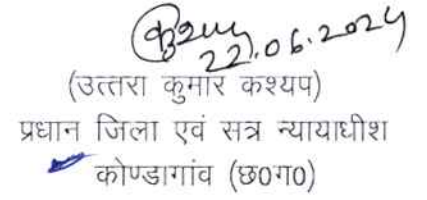 22.06.2024
(उत्तरा कुमार कश्यप)
प्रधान जिला एवं सत्र न्यायाधीश
कोण्डागांव (छ0ग0)